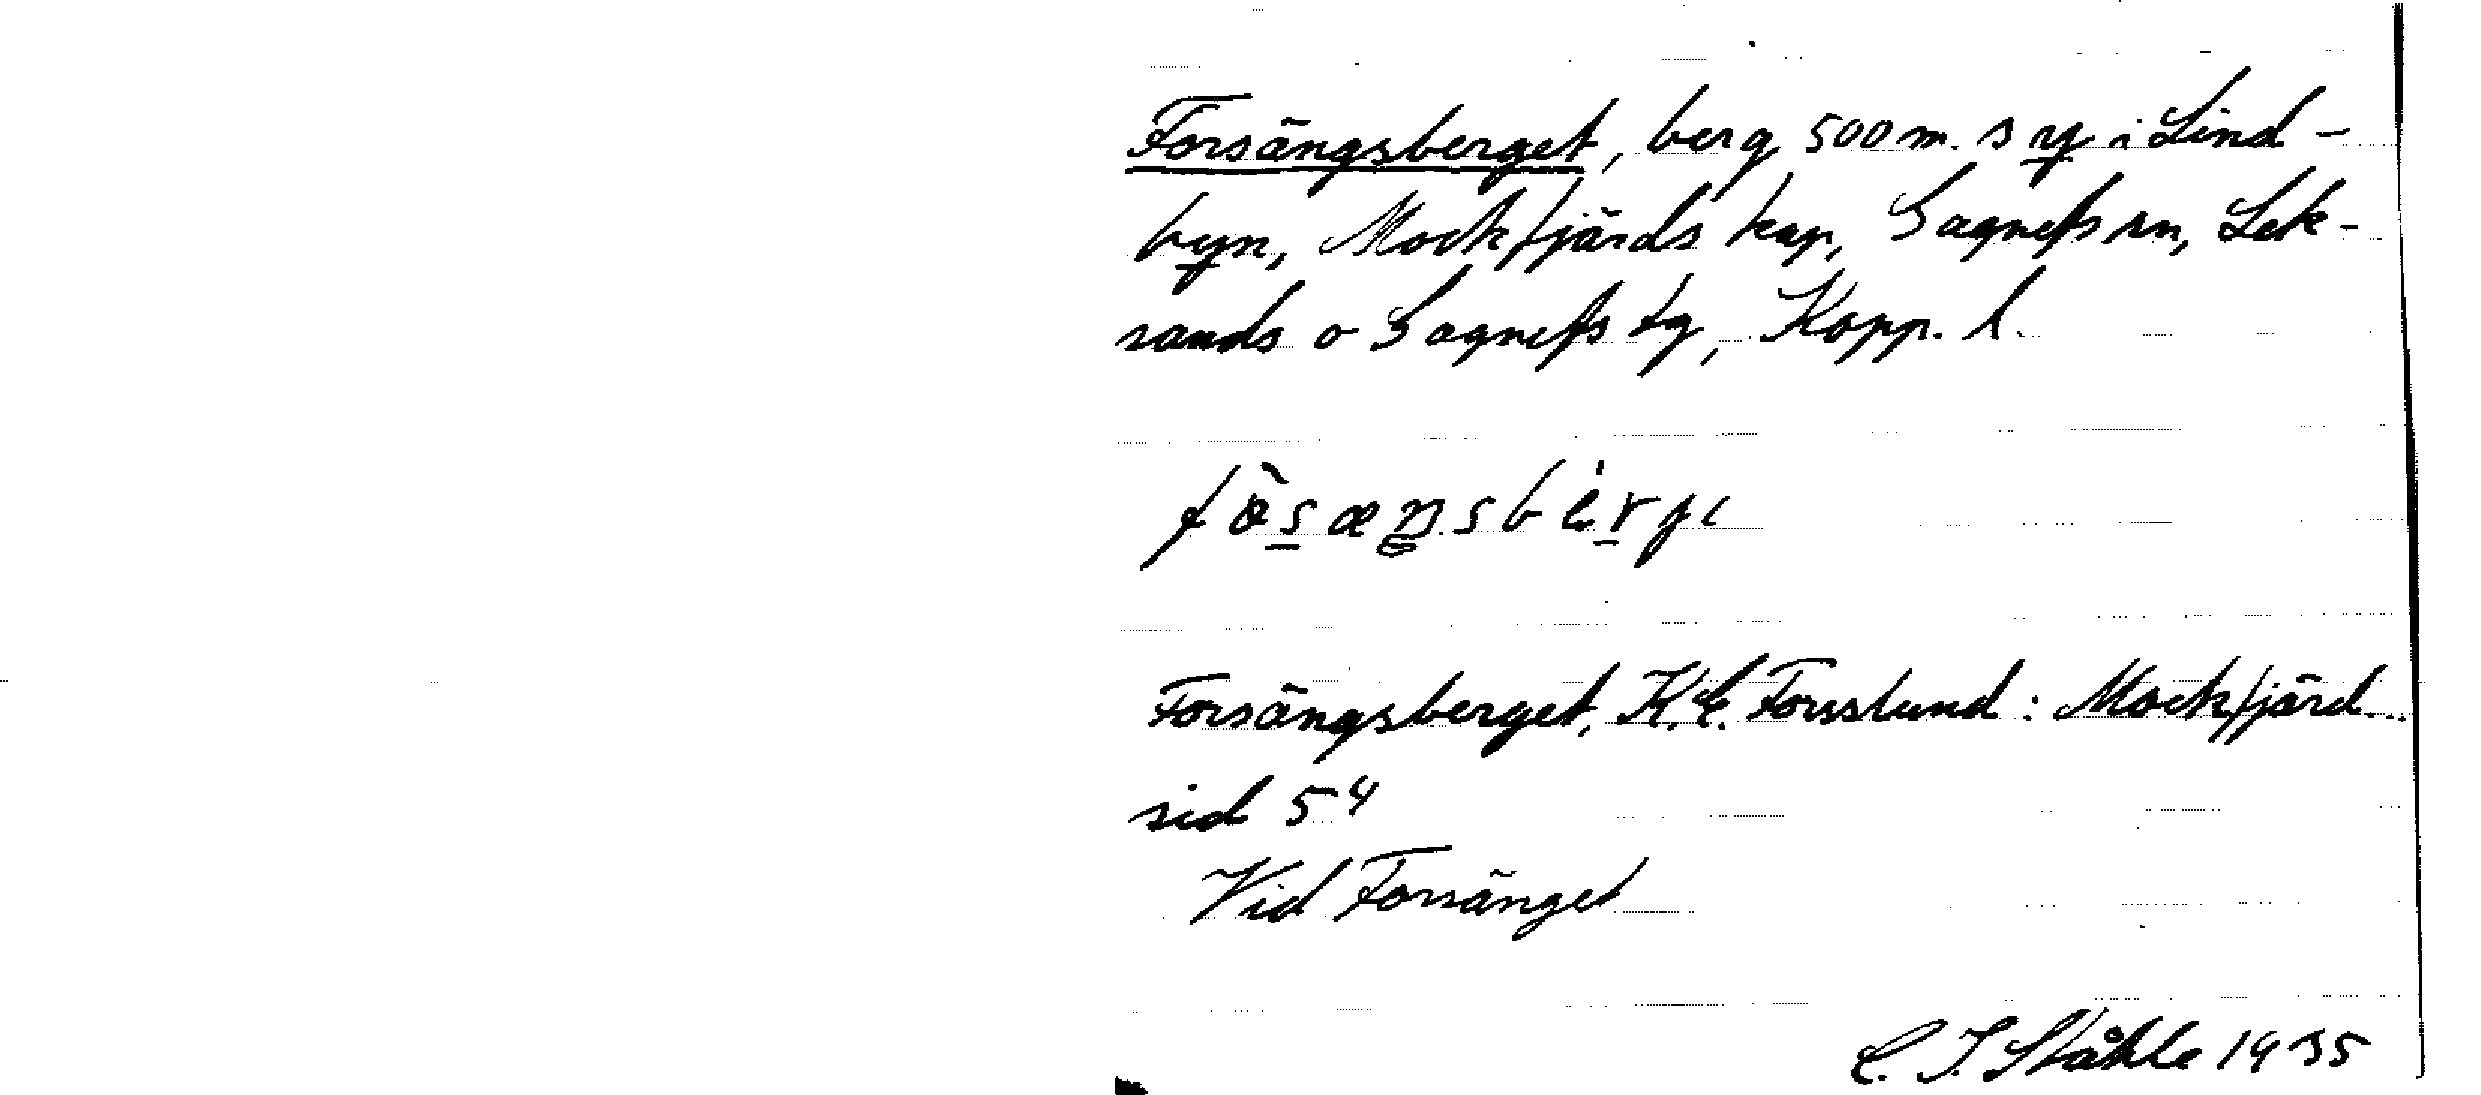 Forsängsberget, berg 500 m. s y i Lind-
byn, Mockfjärds kap, Gagnefs sn, Lek-
sands o Gagnefs tg, Kopp. l.
Forsängsberget, K. E. Forsslund: Mockfjärd
sid 54
Vid Forsänget
C. I. Ståhle 1935